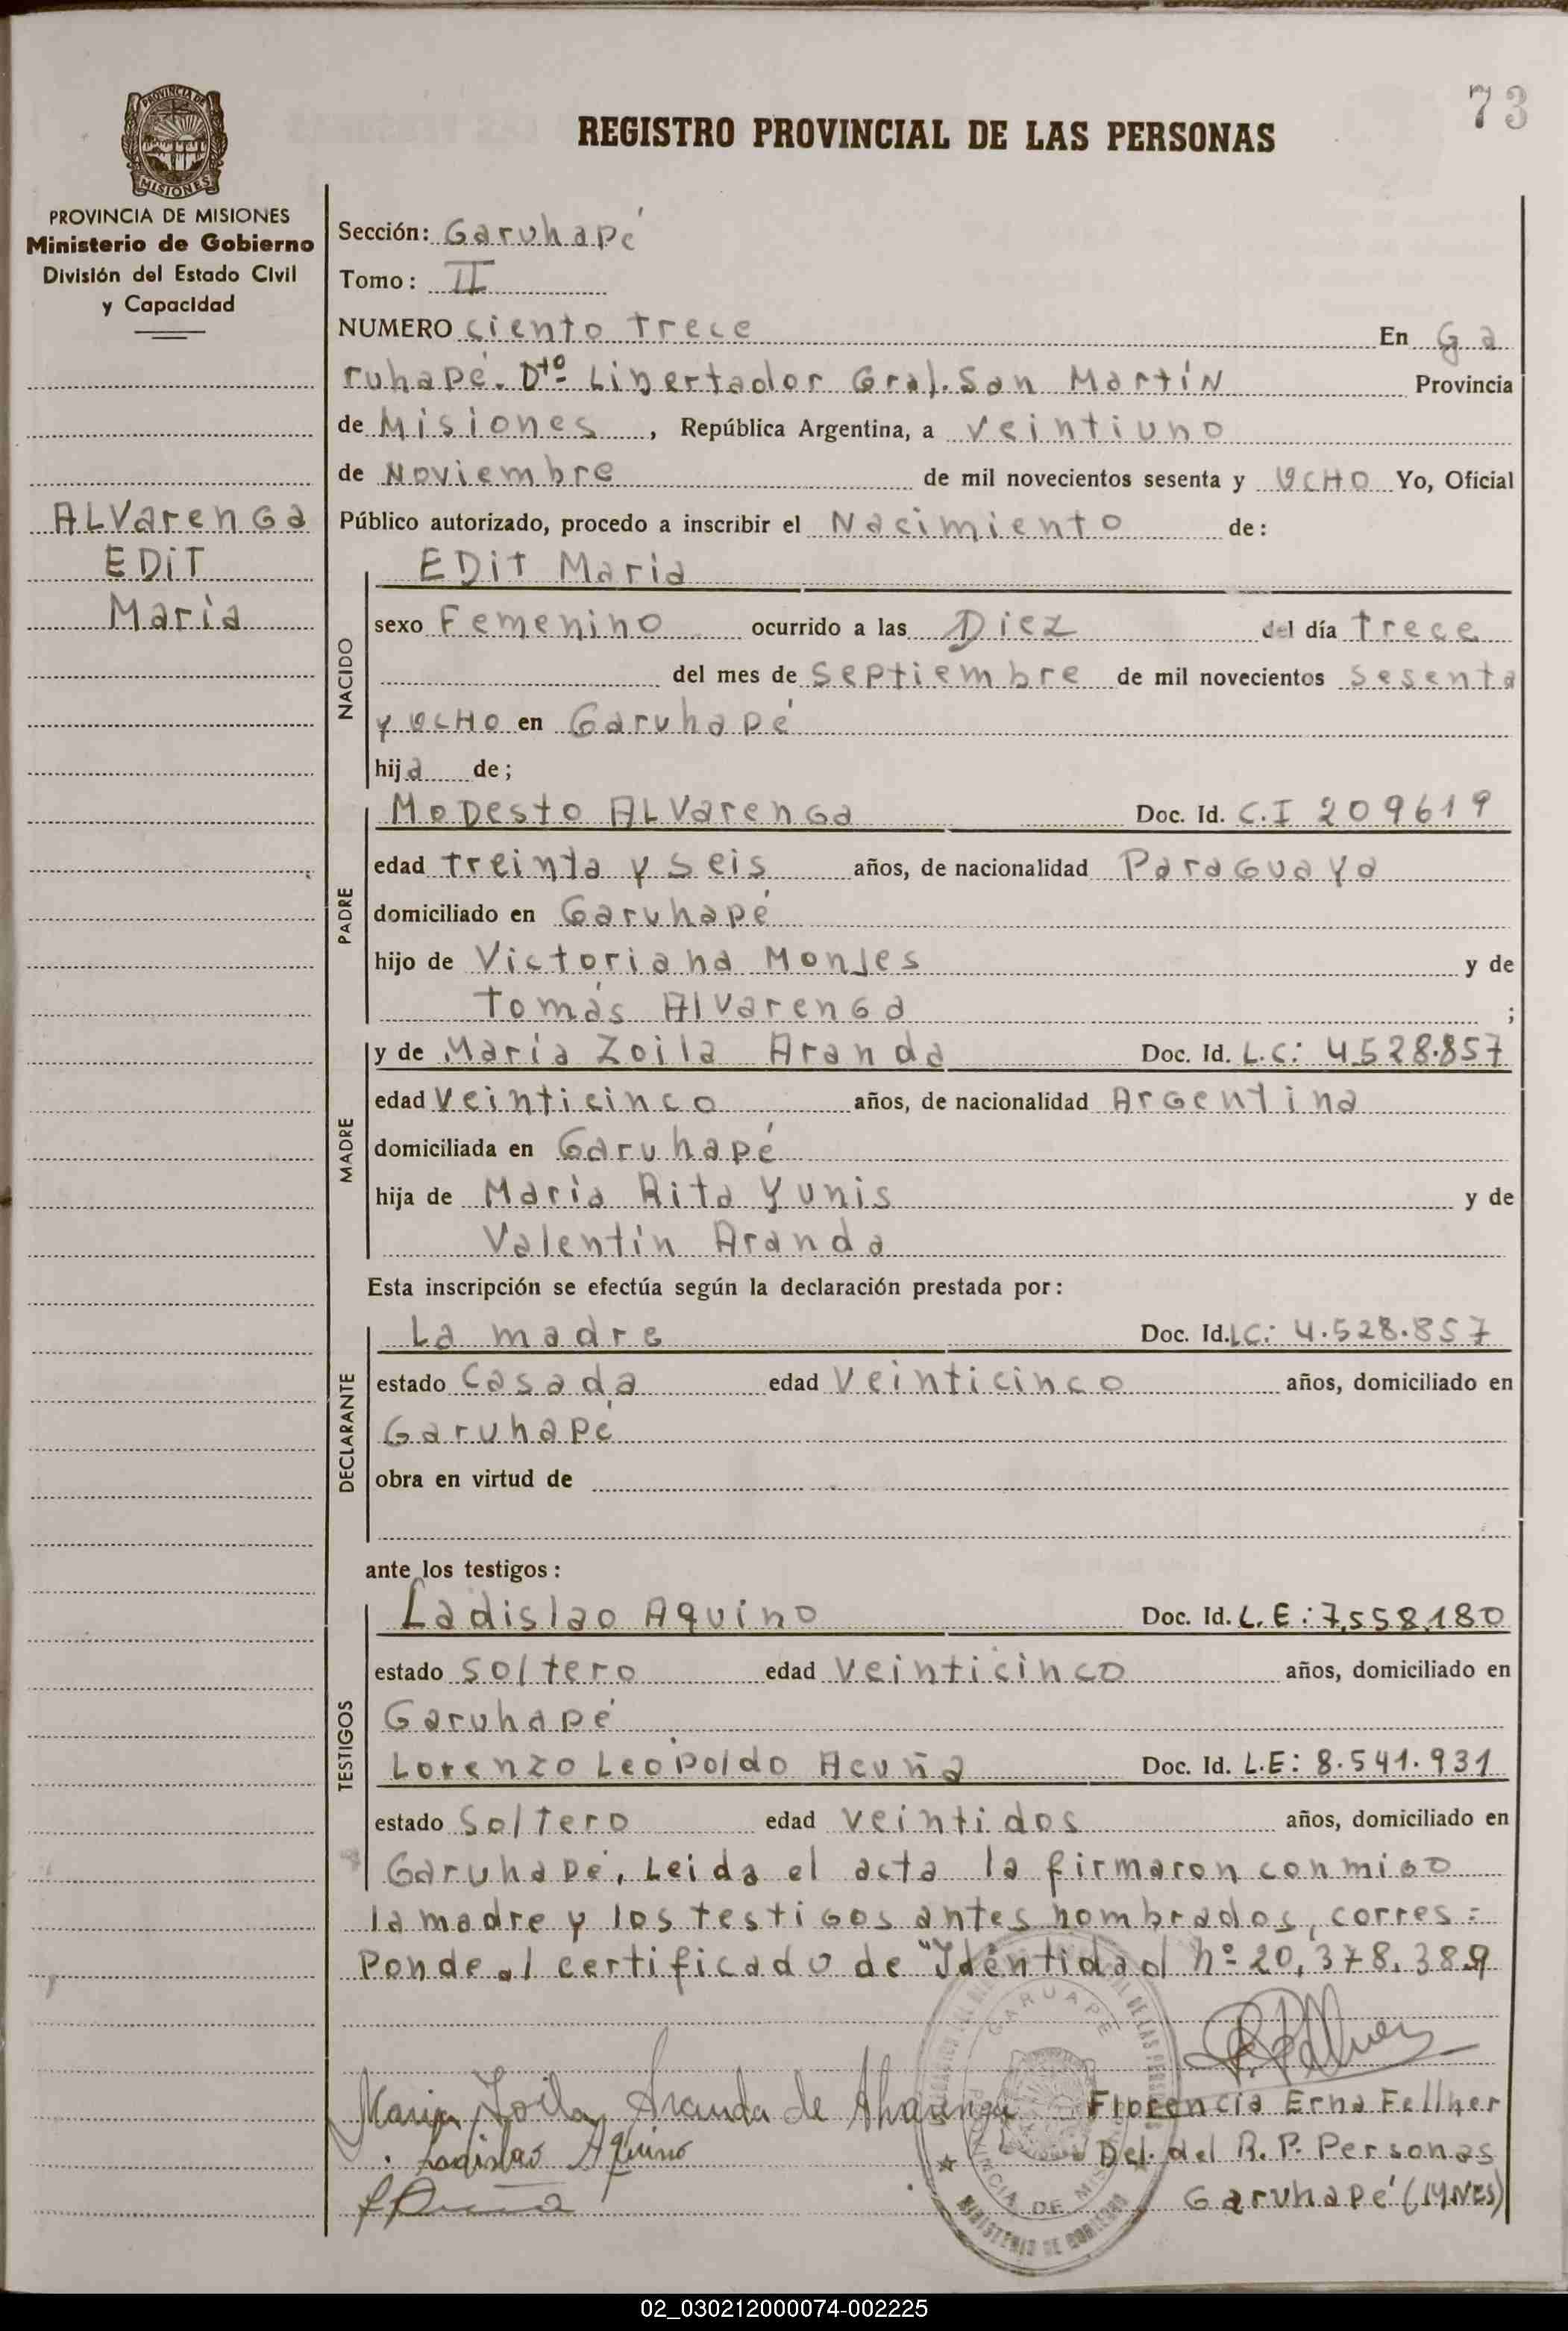 73
REGISTRO PROVINCIAL DE LAS PERSONAS
PROVINCIA DE
MISIONES
PROVINCIA DE MISIONES
Ministerio de Gobierno
División del Estado Civil
y Capacidad
ALVarenGa
EDiT
María
Sección: Garuhapé
Tomo: II
NUMERO ciento trece En Ga
ruhapé. Dtº Libertador Gral. San Martín Provincia
de Misiones, República Argentina, a veintiuno
de Noviembre de mil novecientos sesenta y OCHO Yo, Oficial
Público autorizado, procedo a inscribir el Nacimiento de:
EDit María
NACIDO
sexo Femenino ocurrido a las Diez del día trece
del mes de septiembre de mil novecientos sesenta
y OCHO en Garuhapé
hija de;
PADRE
Modesto ALVarenGa Doc. Id. C.I 209619
edad treinta y seis años, de nacionalidad ParaGuaya
domiciliado en Garuhapé
hijo de Victoriana Monjes y de
Tomás AlvarenGa ;
MADRE
y de María Zoila Aranda Doc. Id. L.C: 4.528.857
edad veinticinco años, de nacionalidad ArGentina
domiciliada en Garuhapé
hija de María Rita Yunis y de
Valentín Aranda
Esta inscripción se efectúa según la declaración prestada por:
DECLARANTE
La madre Doc. Id. LC: 4.528.857
estado Casada edad Veinticinco años, domiciliado en
Garuhapé
obra en virtud de
ante los testigos:
TESTIGOS
Ladislao Aquino Doc. Id. L.E: 7,558,180
estado soltero edad veinticinco años, domiciliado en
Garuhapé
Lorenzo Leopoldo Acuña Doc. Id. L.E: 8.541.931
estado Soltero edad veintidos años, domiciliado en
Garuhapé, Leida el acta la firmaron conmiGo
la madre y los testiGos antes nombrados, corres=
Ponde al certificado de "Identidad nº 20,378,389
GARUAPE
PROVINCIA DE MISIONES
MINISTERIO DE GOBIERNO
Maria Zoila Aranda de Alvarenga
Ladislao Aquino
Florencia Erna Fellner
Del. del R. P. Personas
Garuhapé (MNES)
02_030212000074-002225